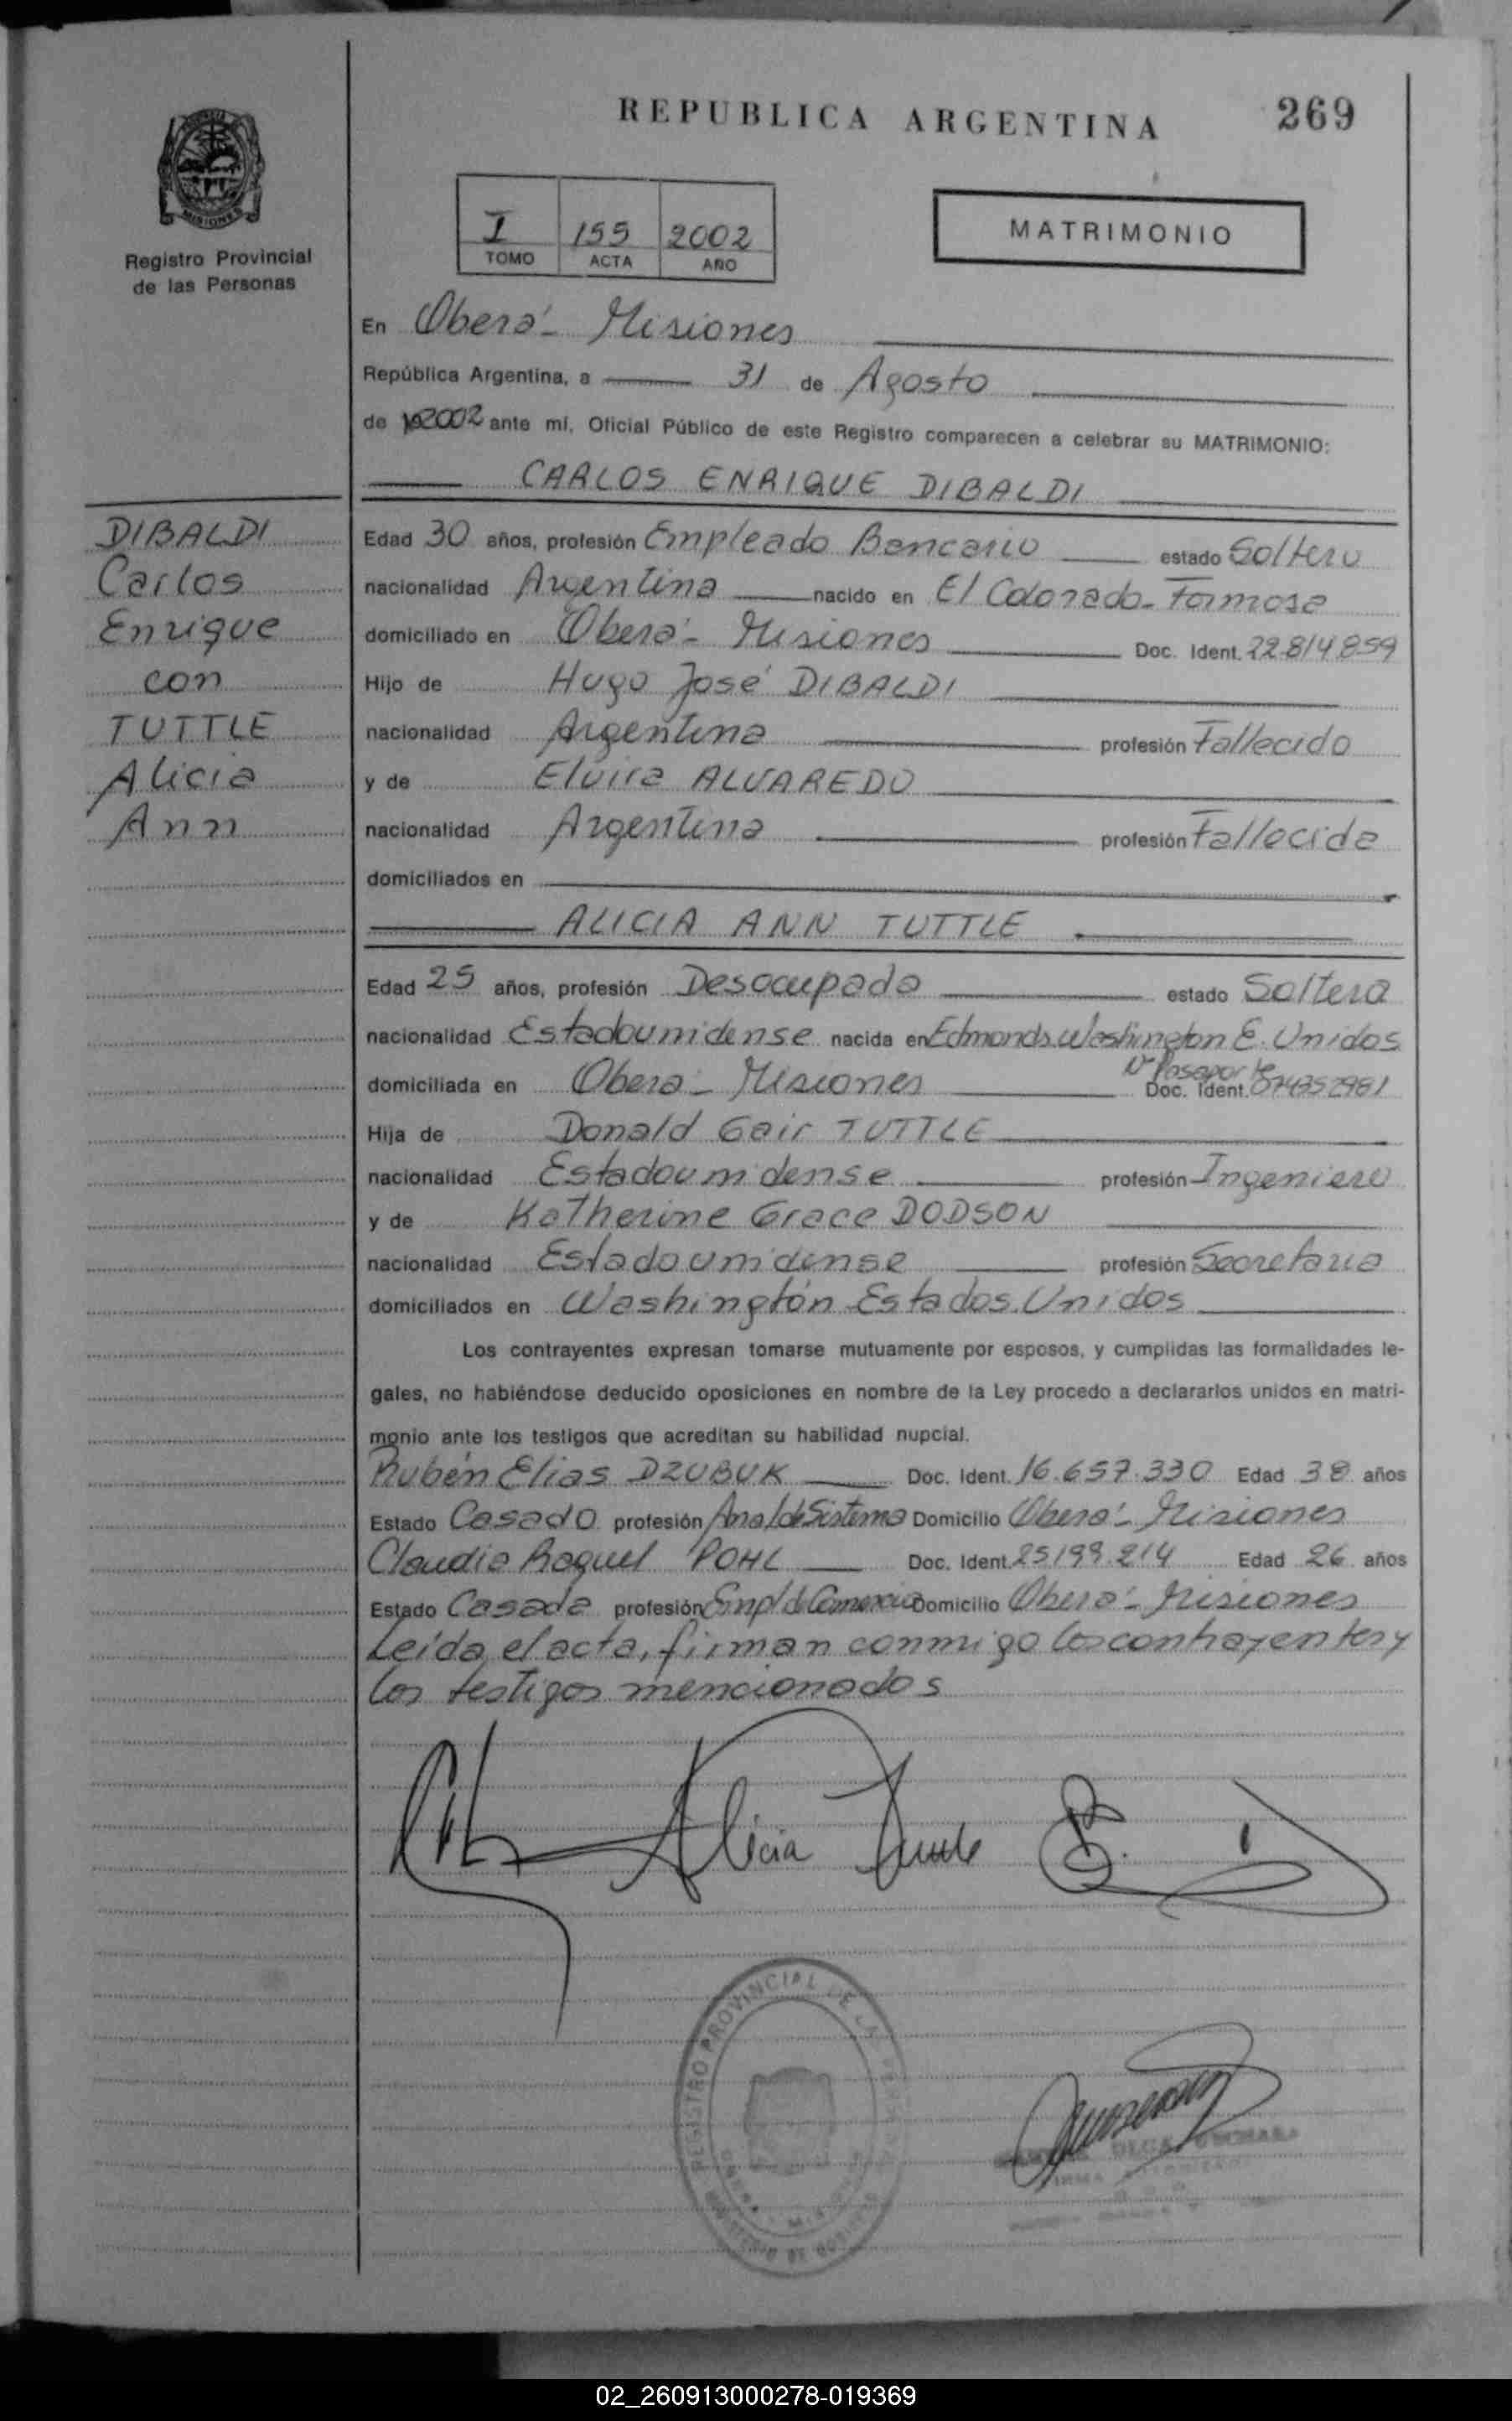 REPUBLICA ARGENTINA
269
MISIONES
Registro Provincial
de las Personas
I 155 2002
TOMO ACTA AÑO
MATRIMONIO
En Oberá - Misiones
República Argentina, a 31 de Agosto
de 2002 ante mí, Oficial Público de este Registro comparecen a celebrar su MATRIMONIO:
CARLOS ENRIQUE DIBALDI
DIBALDI
Carlos
Enrique
con
TUTTLE
Alicia
Ann
Edad 30 años, profesión Empleado Bancario estado Soltero
nacionalidad Argentina nacido en El Colorado - Formosa
domiciliado en Oberá - Misiones Doc. Ident. 22.814.859
Hijo de Hugo José DIBALDI
nacionalidad Argentina profesión Fallecido
y de Elvira ALVAREDO
nacionalidad Argentina profesión Fallecida
domiciliados en
ALICIA ANN TUTTLE
Edad 25 años, profesión Desocupada estado Soltera
nacionalidad Estadounidense nacida en Edmonds Washington E. Unidos
Nº Pasaporte
domiciliada en Oberá - Misiones Doc. Ident. 074352981
Hija de Donald Gair TUTTLE
nacionalidad Estadounidense profesión Ingeniero
y de Katherine Grace DODSON
nacionalidad Estadounidense profesión Secretaria
domiciliados en Washingtón Estados Unidos
Los contrayentes expresan tomarse mutuamente por esposos, y cumplidas las formalidades le-
gales, no habiéndose deducido oposiciones en nombre de la Ley procedo a declararlos unidos en matri-
monio ante los testigos que acreditan su habilidad nupcial.
Rubén Elias DZUBUK Doc. Ident. 16.657.330 Edad 38 años
Estado Casado profesión Anal de Sistema Domicilio Oberá - Misiones
Claudia Raquel POHL Doc. Ident. 25.199.214 Edad 26 años
Estado Casada profesión Empl de Comercio Domicilio Oberá - Misiones
Leída el acta, firman conmigo los contrayentes y
los testigos mencionados
Alicia Tuttle
REGISTRO PROVINCIAL DE LAS
OLGA
02_260913000278-019369